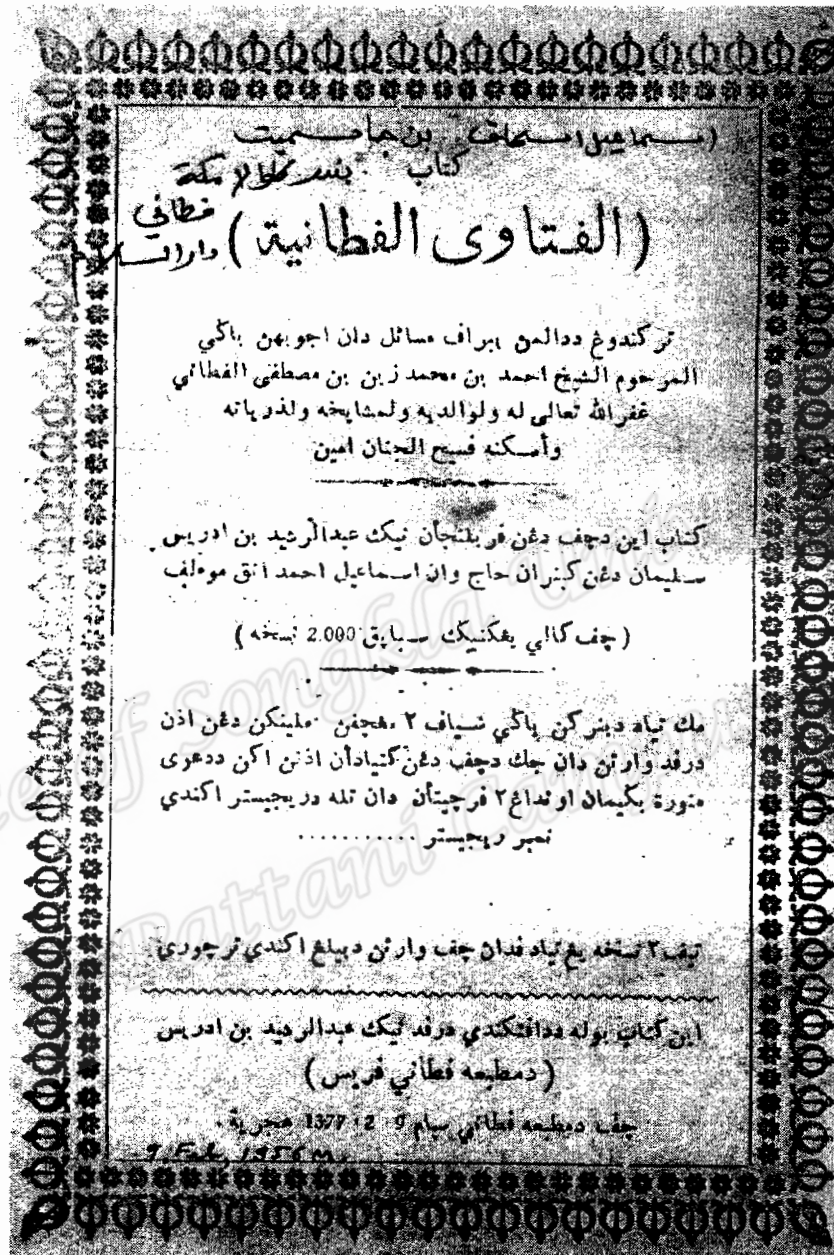 اسماعيل اسحاق بن حاج
كتاب بندر
فطاني
(الفتاوى الفطانية) دار السلام
تركندوغ ددالمن ببراف مسائل دان اجوبهن باڬي
المرحوم الشيخ احمد بن محمد زين بن مصطفى الفطاني
غفر الله تعالى له ولوالديه ولمشايخه ولذرياته
وأسكنه فسيح الجنان امين
كتاب اين دچف دغن فربلنجأن نيك عبدالرشيد بن ادريس
سليمان دغن كبنران حاج وان اسماعيل احمد انق مؤلف
(چف كالي يڠكتيك سبايق 2.000 نسخه)
مك تياد دبنركن باڬي سسياف ٢ مڠچفن ملينكن دغن اذن
درفد وارثن دان جك دچف دغن كتيادأن اذنن اكن ددعوى
منورة بڬيمان اونداغ ٢ فرچيتأن دان تله دريجيستر اكندي
نمبر ريجيستر ...........
تيف ٢ نسخه يغ تياد فدان چف وارثن دبيلغ اكندي ترچوري
اين كتاب بوله ددافتكندي درفد نيك عبدالرشيد بن ادريس
(دمطبعه فطاني فريس)
چف دمطبعه فطاني سيام 9 - 2 - 1377 هجرية.
9 Feb, 1956 m.
of Songkla
Pattani Campus